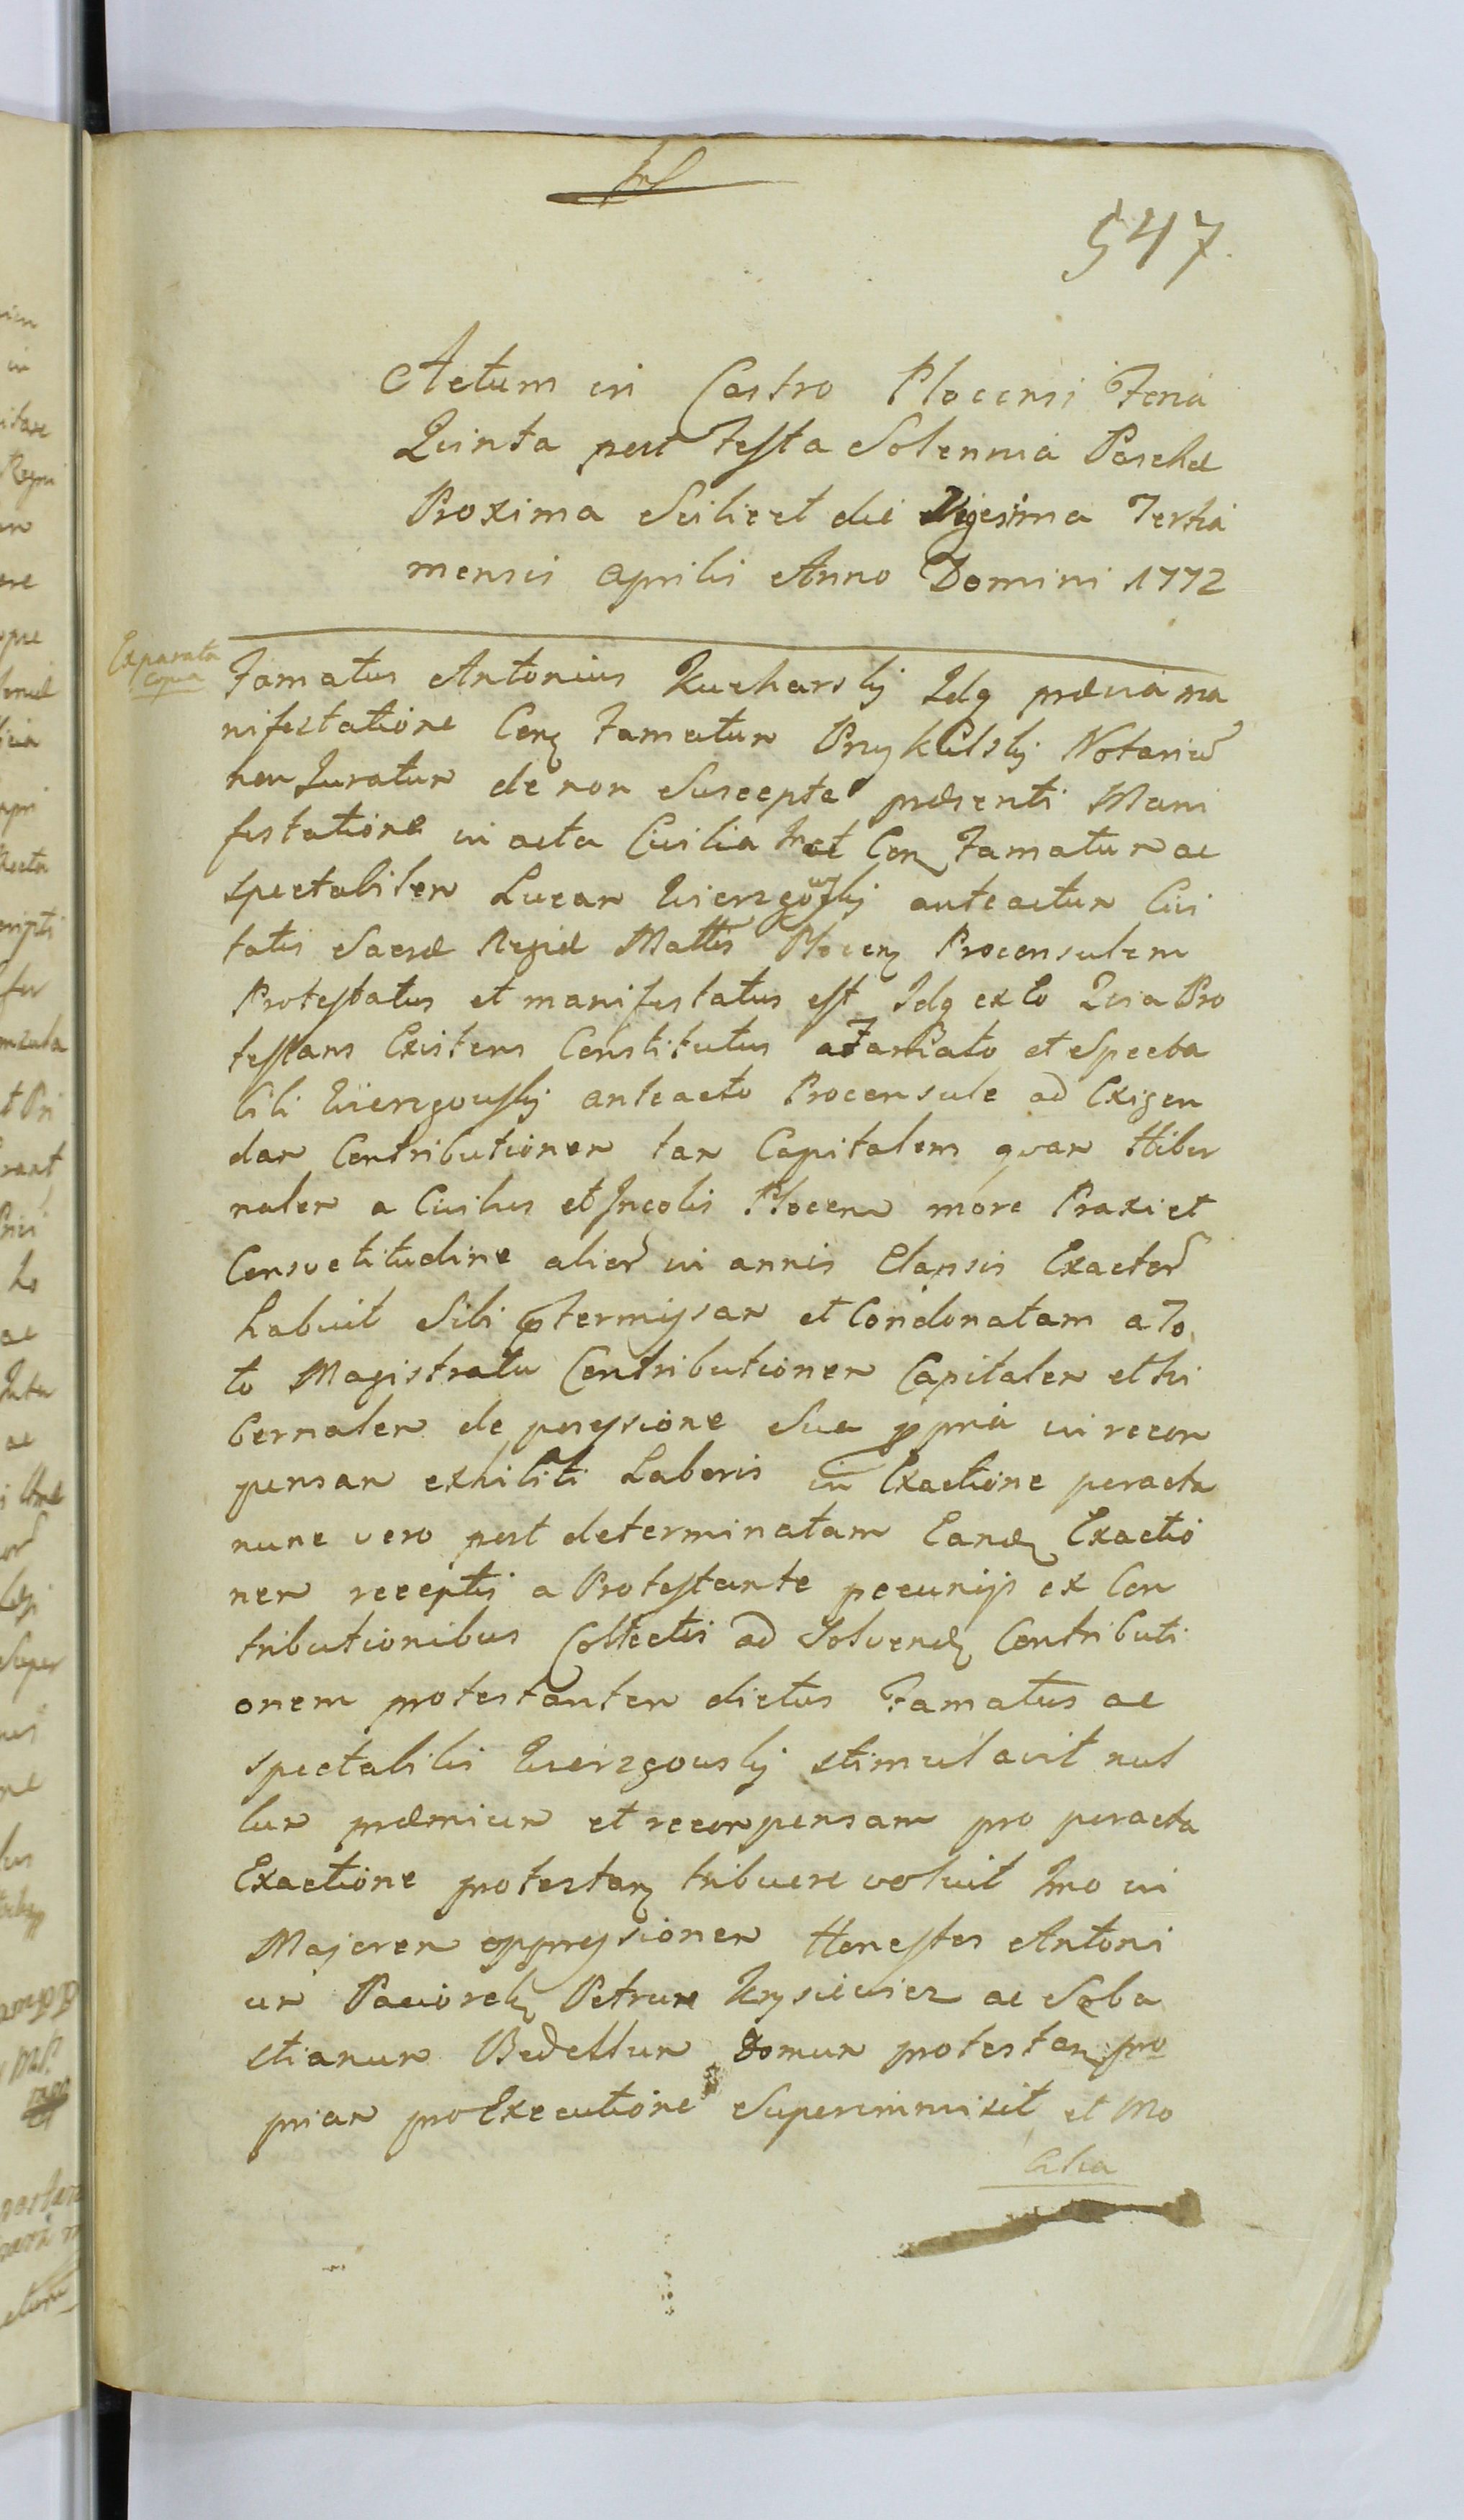 547.
Actum in Castro Plocensi Feria
Quinta post Festa Solennia Paschæ
Proxima Scilicet die Vigesima Tertia
mensis Aprilis Anno Domini 1772
Exparata
copia
Famatus Antonius Kucharskj Idq præviâ ma
nifestatione Conq Famatum Przykulskj Notariū
non Juratum de non Suscepta præsenti Mani
festatione in acta Civilia Conq Famatum ac
spectabilem Lucam Wierzgowskj anteactum Civi
tatis Sacræ Regiæ Mattis Plocenq Proconsulem
Protestatus et manifestatus est Idq ex eo Quia Pro
testans Existens Constitutus a Famato et Specta
bili Wierzgowskj anteacto Proconsule ad Exigen
dam Contributionem tam Capitalem quam Hiber
nalem a Civibus et Incolis Plocen more Praxi et
Consvetitudine alior in annis Elapsis Exactor
habuit Sibi ptermissam et Condonatam a To
to Magistratu Contributionem Capitalem et hi
bernalem de possessione Sua ppria in recom
pensam exhibiti Laboris in Exactione peracta
nunc vero post determinatam Eandq Exactio
nem receptis a Protestante pecunijs ex Con
tributionibus Collectis ad Solvendq Contributi
onem protestantem dictus Famatus ac
spectabilis Wierzgowskj stimulavit nul
lum præmium et recompensam pro peracta
Exactione protestanq tribuere voluit Imo in
Majorem oppressionem Honestos Antoni
um Paciorekq Petrum ac Seba
stianum Bedellum Domum protestanq pro
priam pro Executione Superimmisit et Mo
bilia